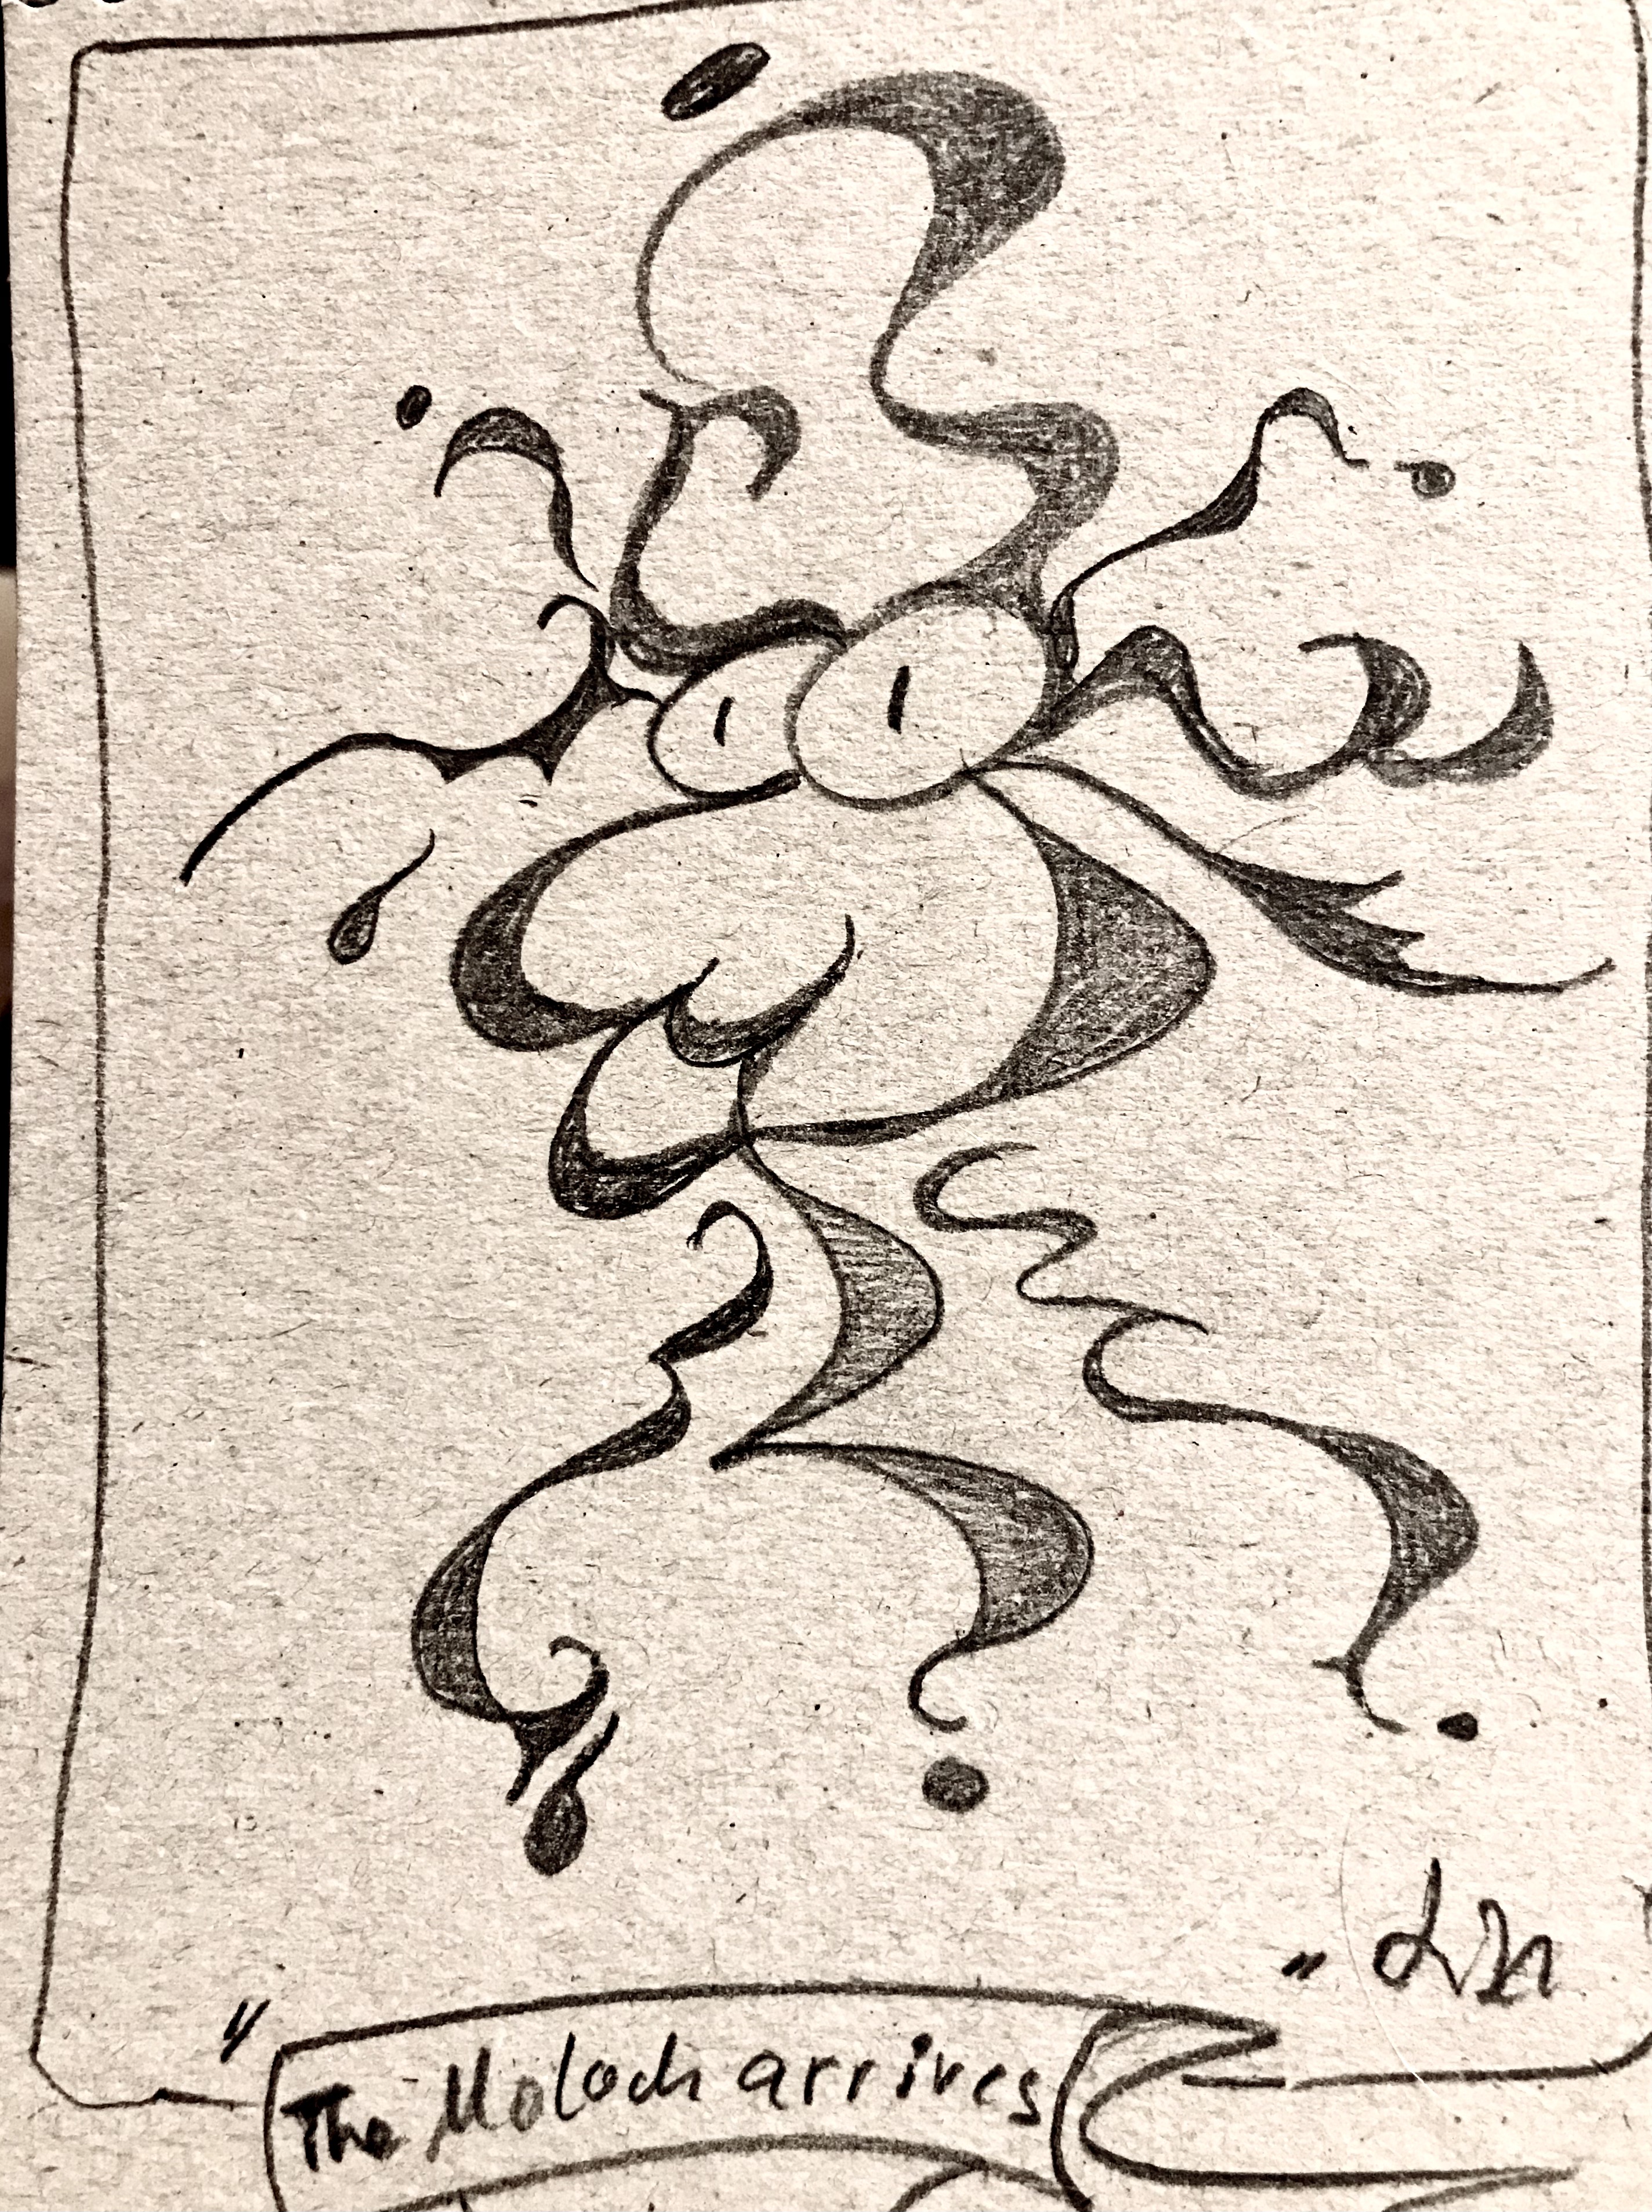 "The Moloch arrives"